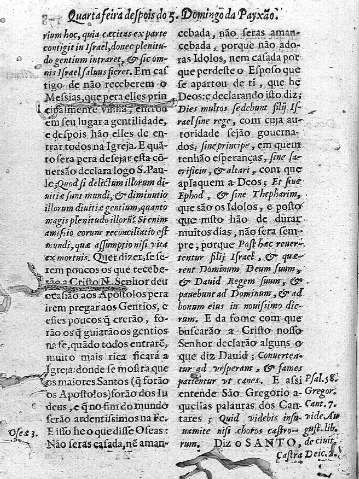 Quarta feira despois do 5. Domingo da Payxão.
rium hoc, quia cæcitas ex parte
contigit in Israel, donec plenitu-
do gentium intraret, & sic om-
nis Israel salvus fieret. Em cas-
tigo de não receberem o
Messias, que pera elles prin-
cipalmente vinha, entrou
em seu lugar a gentilidade,
e despois hão elles de en-
trar todos na Igreja. E quá-
to sera pera desejar esta cõ-
versão declara logo S. Pau-
lo: Quod si delictum illorum di-
vitiæ sunt mundi, & diminutio
illorum divitiæ gentium, quanto
magis plenitudo illorũ? Si enim
amissio eorum reconciliatio est
mundi, quæ assumptio nisi vita
ex mortuis. Quer dizer, se se-
rem poucos os que recebe-
rão a Cristo N. Senhor deu
ocasião aos Apostolos pera
irem pregar aos Gentios, e
esses poucos q̃ crerão, fo-
rão os q̃ guiarão os gentios
na fe, quãdo todos entrarẽ,
muito mais rica ficará a
Igreja: donde se mostra que
os maiores Santos (q̃ forão
os Apostolos) forão dos Iu-
deus, e q̃ no fim do mundo
serão ardentissimos na Fe.
E isso he o que disse Oseas:
Não seras casada, nẽ aman-
Osea 3.
cebada, não seras aman-
cebada, porque não ado-
ras Idolos, nem casada por
que perdeste o Esposo que
se apartou de ti, que he
Deos: e declarando isto diz:
Dies multos sedebunt filij Is-
rael sine rege, com cuja au-
toridade sejão governa-
dos, sine principe, em quem
tenhão esperanças, sine sa-
crificio, & altari, com que
aplaquem a Deos; Et sine
Ephod, & sine Theraphim,
que são os Idolos, e posto
que nisto hão de durar
muitos dias, não sera sem-
pre, porque Post hæc rever-
tentur filij Israel, & quæ-
rent Dominum Deum suum,
& David Regem suum, &
pavebunt ad Dominum, & ad
bonum eius in novissimo die-
rum. E da fome com que
buscarão a Cristo nosso
Senhor declarão alguns o
que diz David; Converten-
tur ad vesperam, & famem
patientur ut canes. E assi
entende São Gregorio a-
quellas palavras dos Can-
tares; Quid videbis in su-
namite nisi choros castro-
rum. Diz o SANTO,
Psal. 58.
Gregor.
Cant. 7.
vide Au
gust. lib.
de civit.
Dei c.
Castra